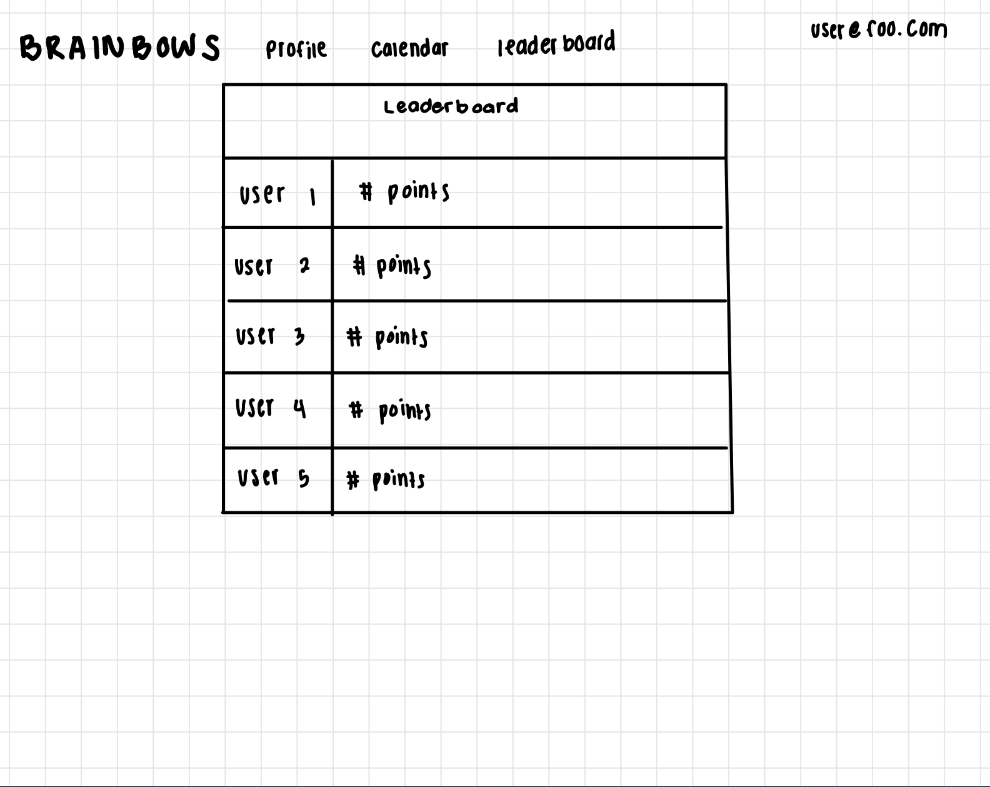 BRAINBOWS profile calendar leaderboard user@foo.com
Leaderboard
user 1 # points
user 2 # points
user 3 # points
user 4 # points
user 5 # points